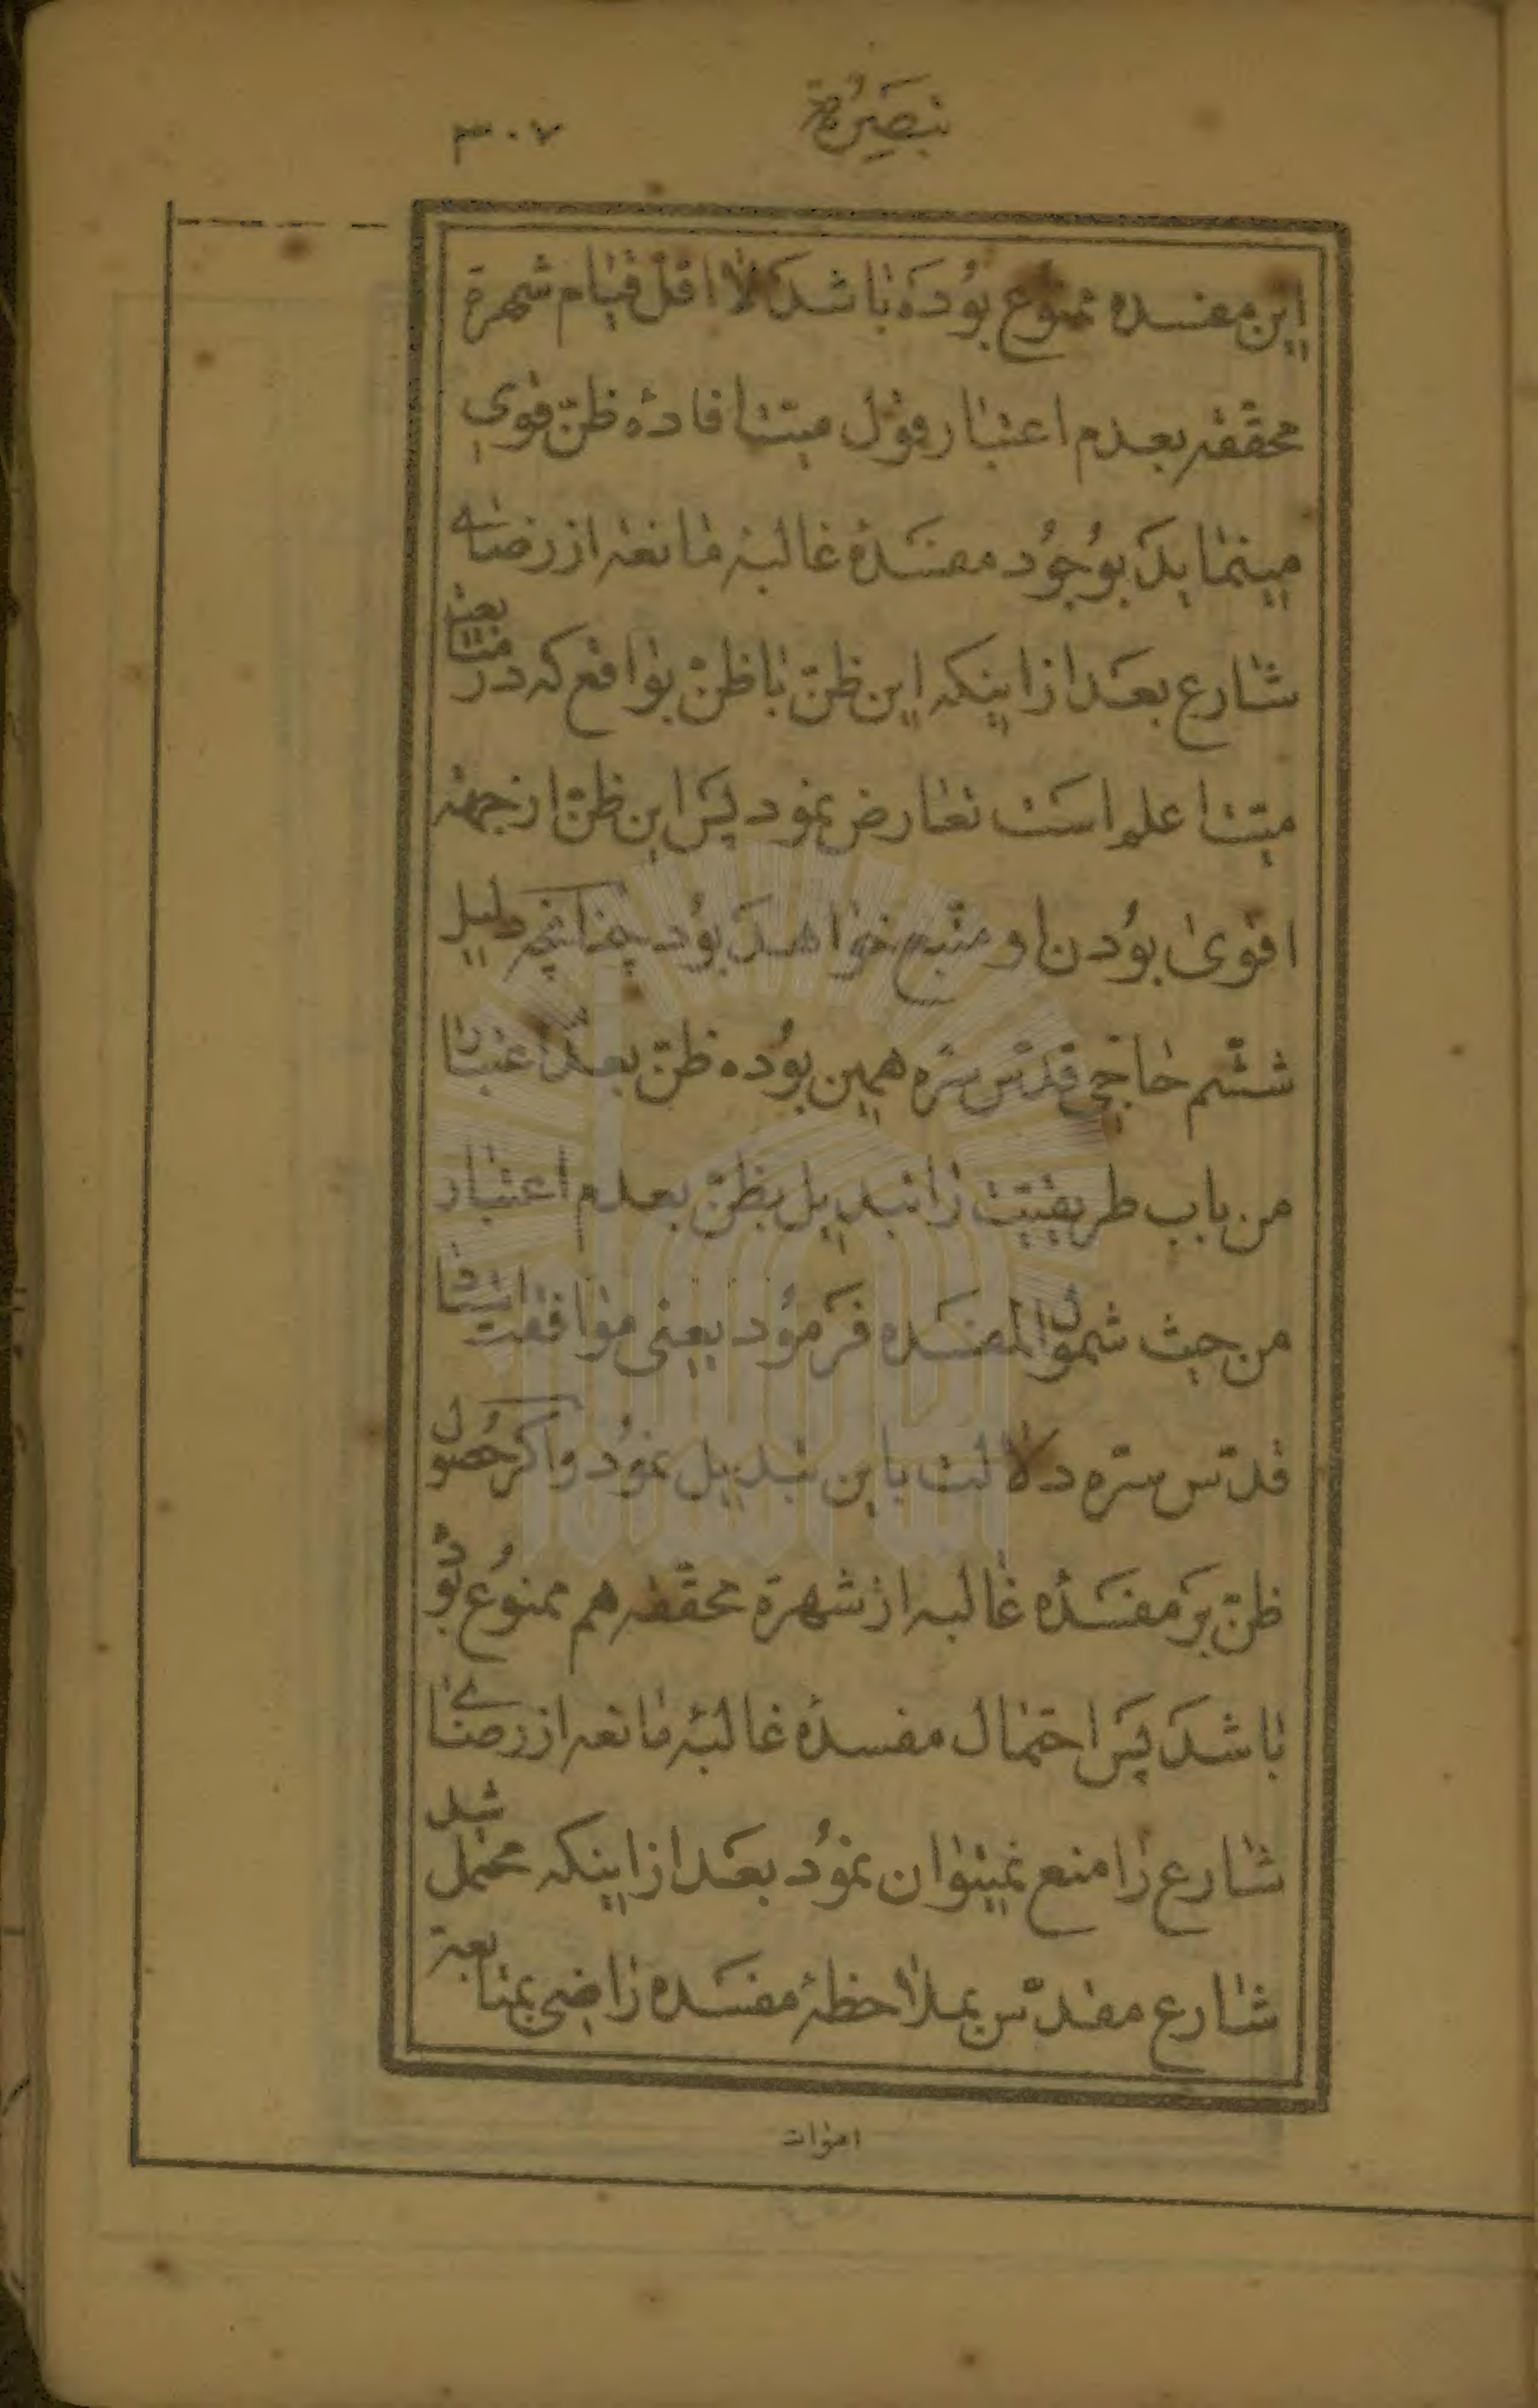 تبصرة
٣٠٧
این مفسده ممنوع بوده باشد لااقل قیام شهرة
محققه بعدم اعتبار قول میّت افاده ظنّ قوی
مینماید بوجود مفسدهٔ غالبهٔ مانعه از رضای
شارع بعد از اینکه این ظنّ با ظنّ بواقع که در متابعت
میّت اعلم است تعارض نمود پس این ظنّ از جهة
اقوی بودن او متّبع خواهد بود چنانچه دلیل
ششم حاجی قدّس سرّه همین بوده ظنّ بعدم اعتبار
من باب طریقیّت را تبدیل بظنّ بعدم اعتبار
من حیث شمول المفسده فرمود یعنی موافقت استاد
قدّس سرّه دلالت باین تبدیل نمود و اگر حصول
ظنّ بر مفسدهٔ غالبه از شهرة محققه هم ممنوع بوده
باشد پس احتمال مفسدهٔ غالبهٔ مانعه از رضای
شارع را منع نمیتوان نمود بعد از اینکه محتمل شد
شارع مقدّس بملاحظهٔ مفسده راضی بمتابعة
اموات